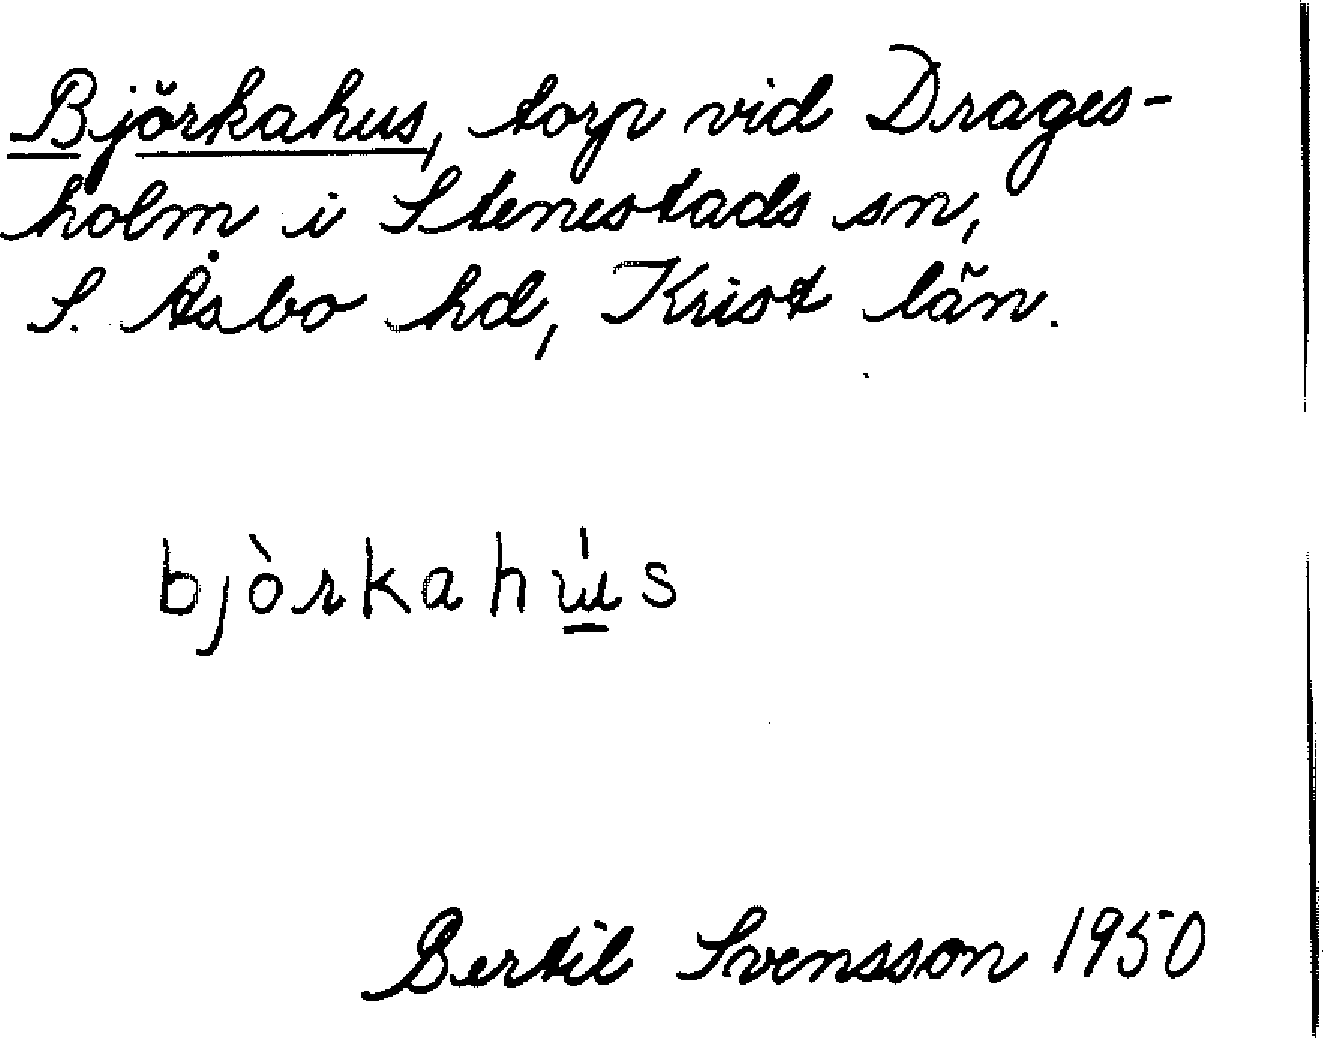 Björkahus, torp vid Drages-
holm i Stenestads sn,
S. Åsbo hd, Krist län.
bjòrkahɯ́s
Bertil Svensson 1950